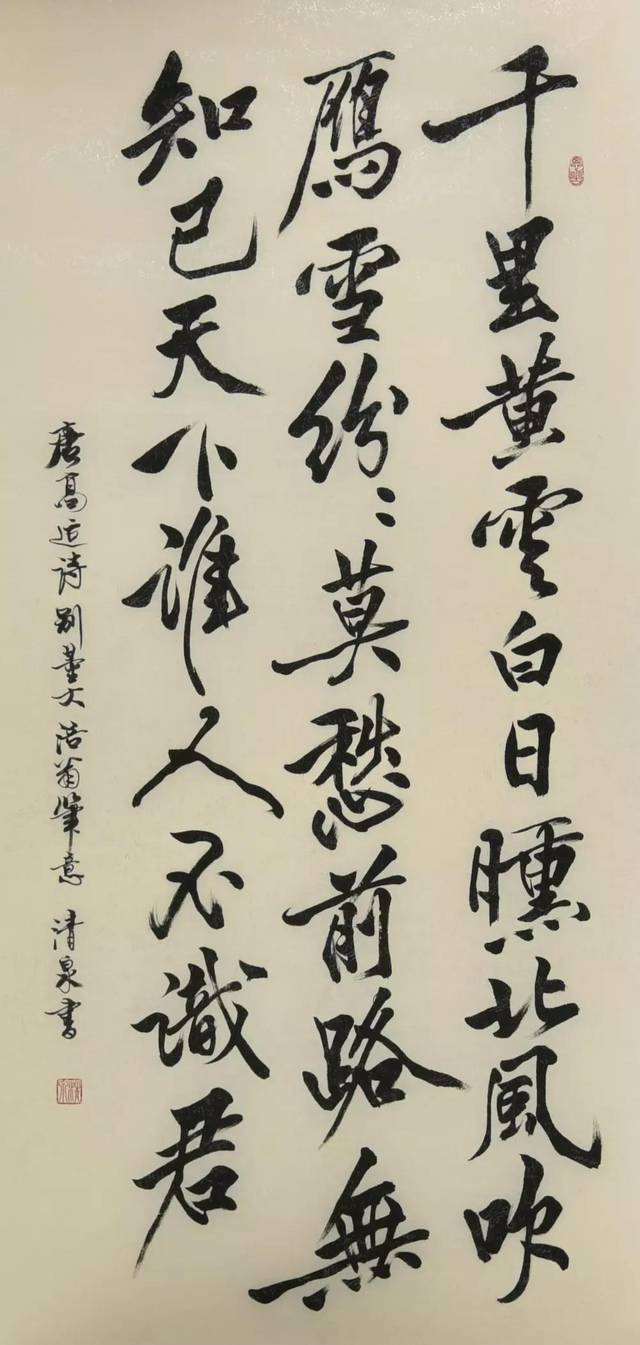 千里黄雲白日曛北風吹
雁雪紛〻莫愁前路無
知己天下誰人不識君
唐高适诗别董大涪翁筆意 清泉書